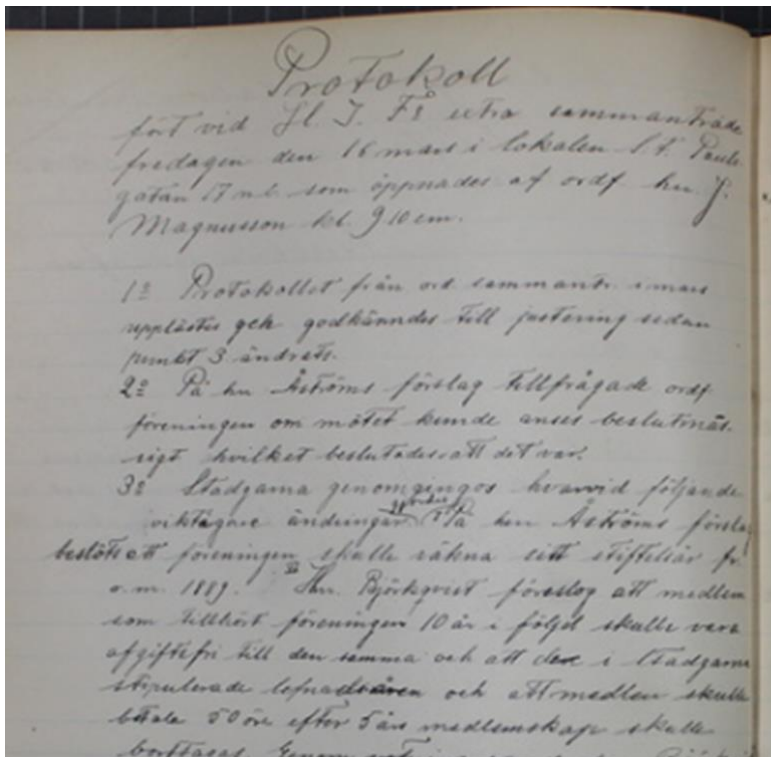 Protokoll
fört vid Sl. I. Fs extra sammanträde
fredagen den 16 mars i lokalen S:t Pauls
gatan 17 n.b. som öppnades af ordf. hrr J.
Magnusson kl. 9 10 em.
1º Protokollet från ord sammantr. i mars
upplästes och godkänndes till justering sedan
punkt 3 ändrats.
2º På hrr Åströms förslag tillfrågade ordf.
föreningen om mötet kunde anses beslutmäs-
sigt hvilket beslutades att det var.
3º Stadgarna genomgingos hvarvid följande
viktigare ändringar gjordes. På hrr Åströms förslag
beslöts att föreningen skulle räkna sitt stiftelsår fr.
o. m. 1889. Hrr. Björkqvist föreslog att medlem
som tillhört föreningen 10 år i följd skulle vara
afgiftsfri till den samma och att de i stadgarna
stipulerade och att medlem skulle
betala 50 öre efter 5 års medlemskap skulle
borttagas. Genom